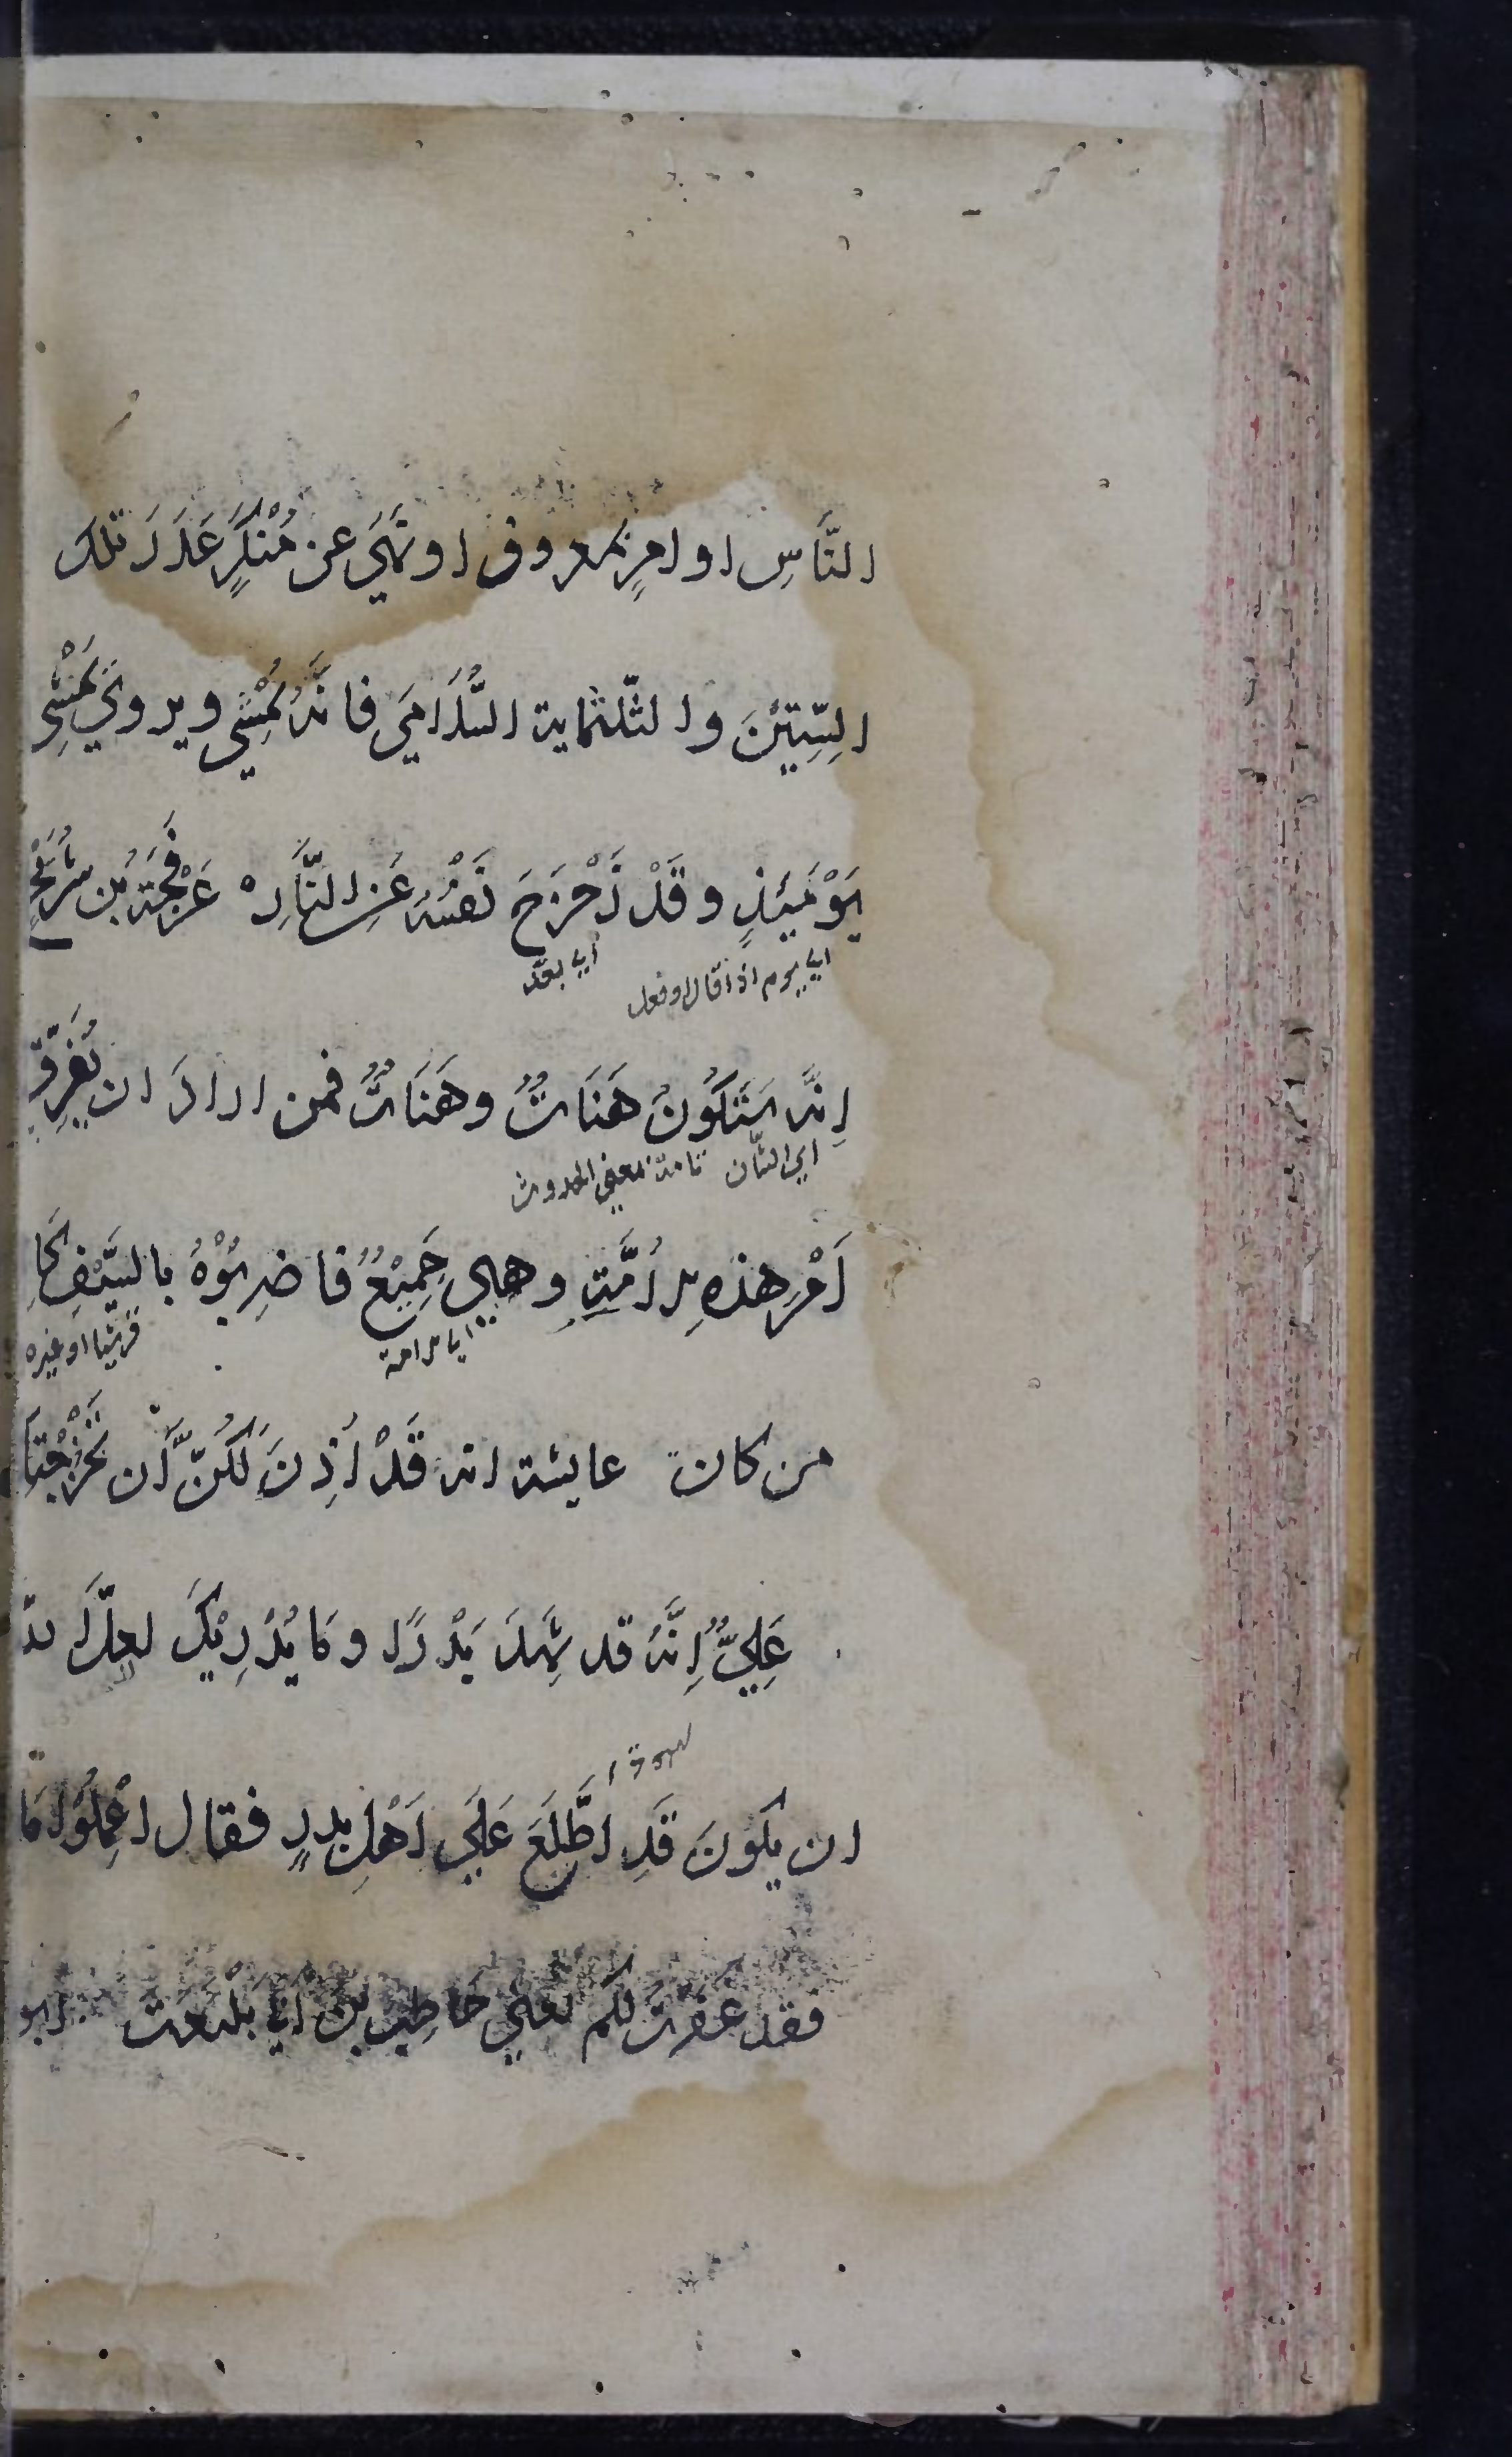 النَّاسِ او امرٍ بمعروف او نَهَيَ عن مُنْكَرٍ عَدَدَ تلك
السِّتِّيْنَ والثلثماية السُّلَامَي فانَّهُ يُمْسِي ويروي يَمْشِي
يَوْمَئِذٍ وقَدْ زَحْزَحَ نَفْسَهُ عَنِ النَّارِ ه عَرْفَجَةُ بْن شُرَيْحٍ
اي يوم اذا قال او فعل
اي بعَّد
اِنَّه سَتَكُونُ هَنَاتٌ وهَنَاتٌ فمن ارادَ ان يُفَرِّقَ
اي الشّان تامة بمعني الحدوث
اَمْرَ هذه الاُمَّةِ وهي جَمِيْعٌ فاضرِبُوْهُ بالسَّيْفِ كَا
اي الامة
قرشيا او غيره
من كان عايشة انه قَدْ اُذِنَ لَكُنَّ اَن تَخْرُجْنَ
عَلِيٌّ اِنَّهُ قد شَهِدَ بَدْرًا ومَا يُدْرِيْكَ لعلَّ الله
ان يكونَ قَدِ اطَّلَعَ عَلَي اَهْلِ بدرٍ فقال اعْمَلُوا مَا
فقد غفرتُ لكم يعني حَاطِبَ بْنَ اَبِي بَلْتَعَة ابو